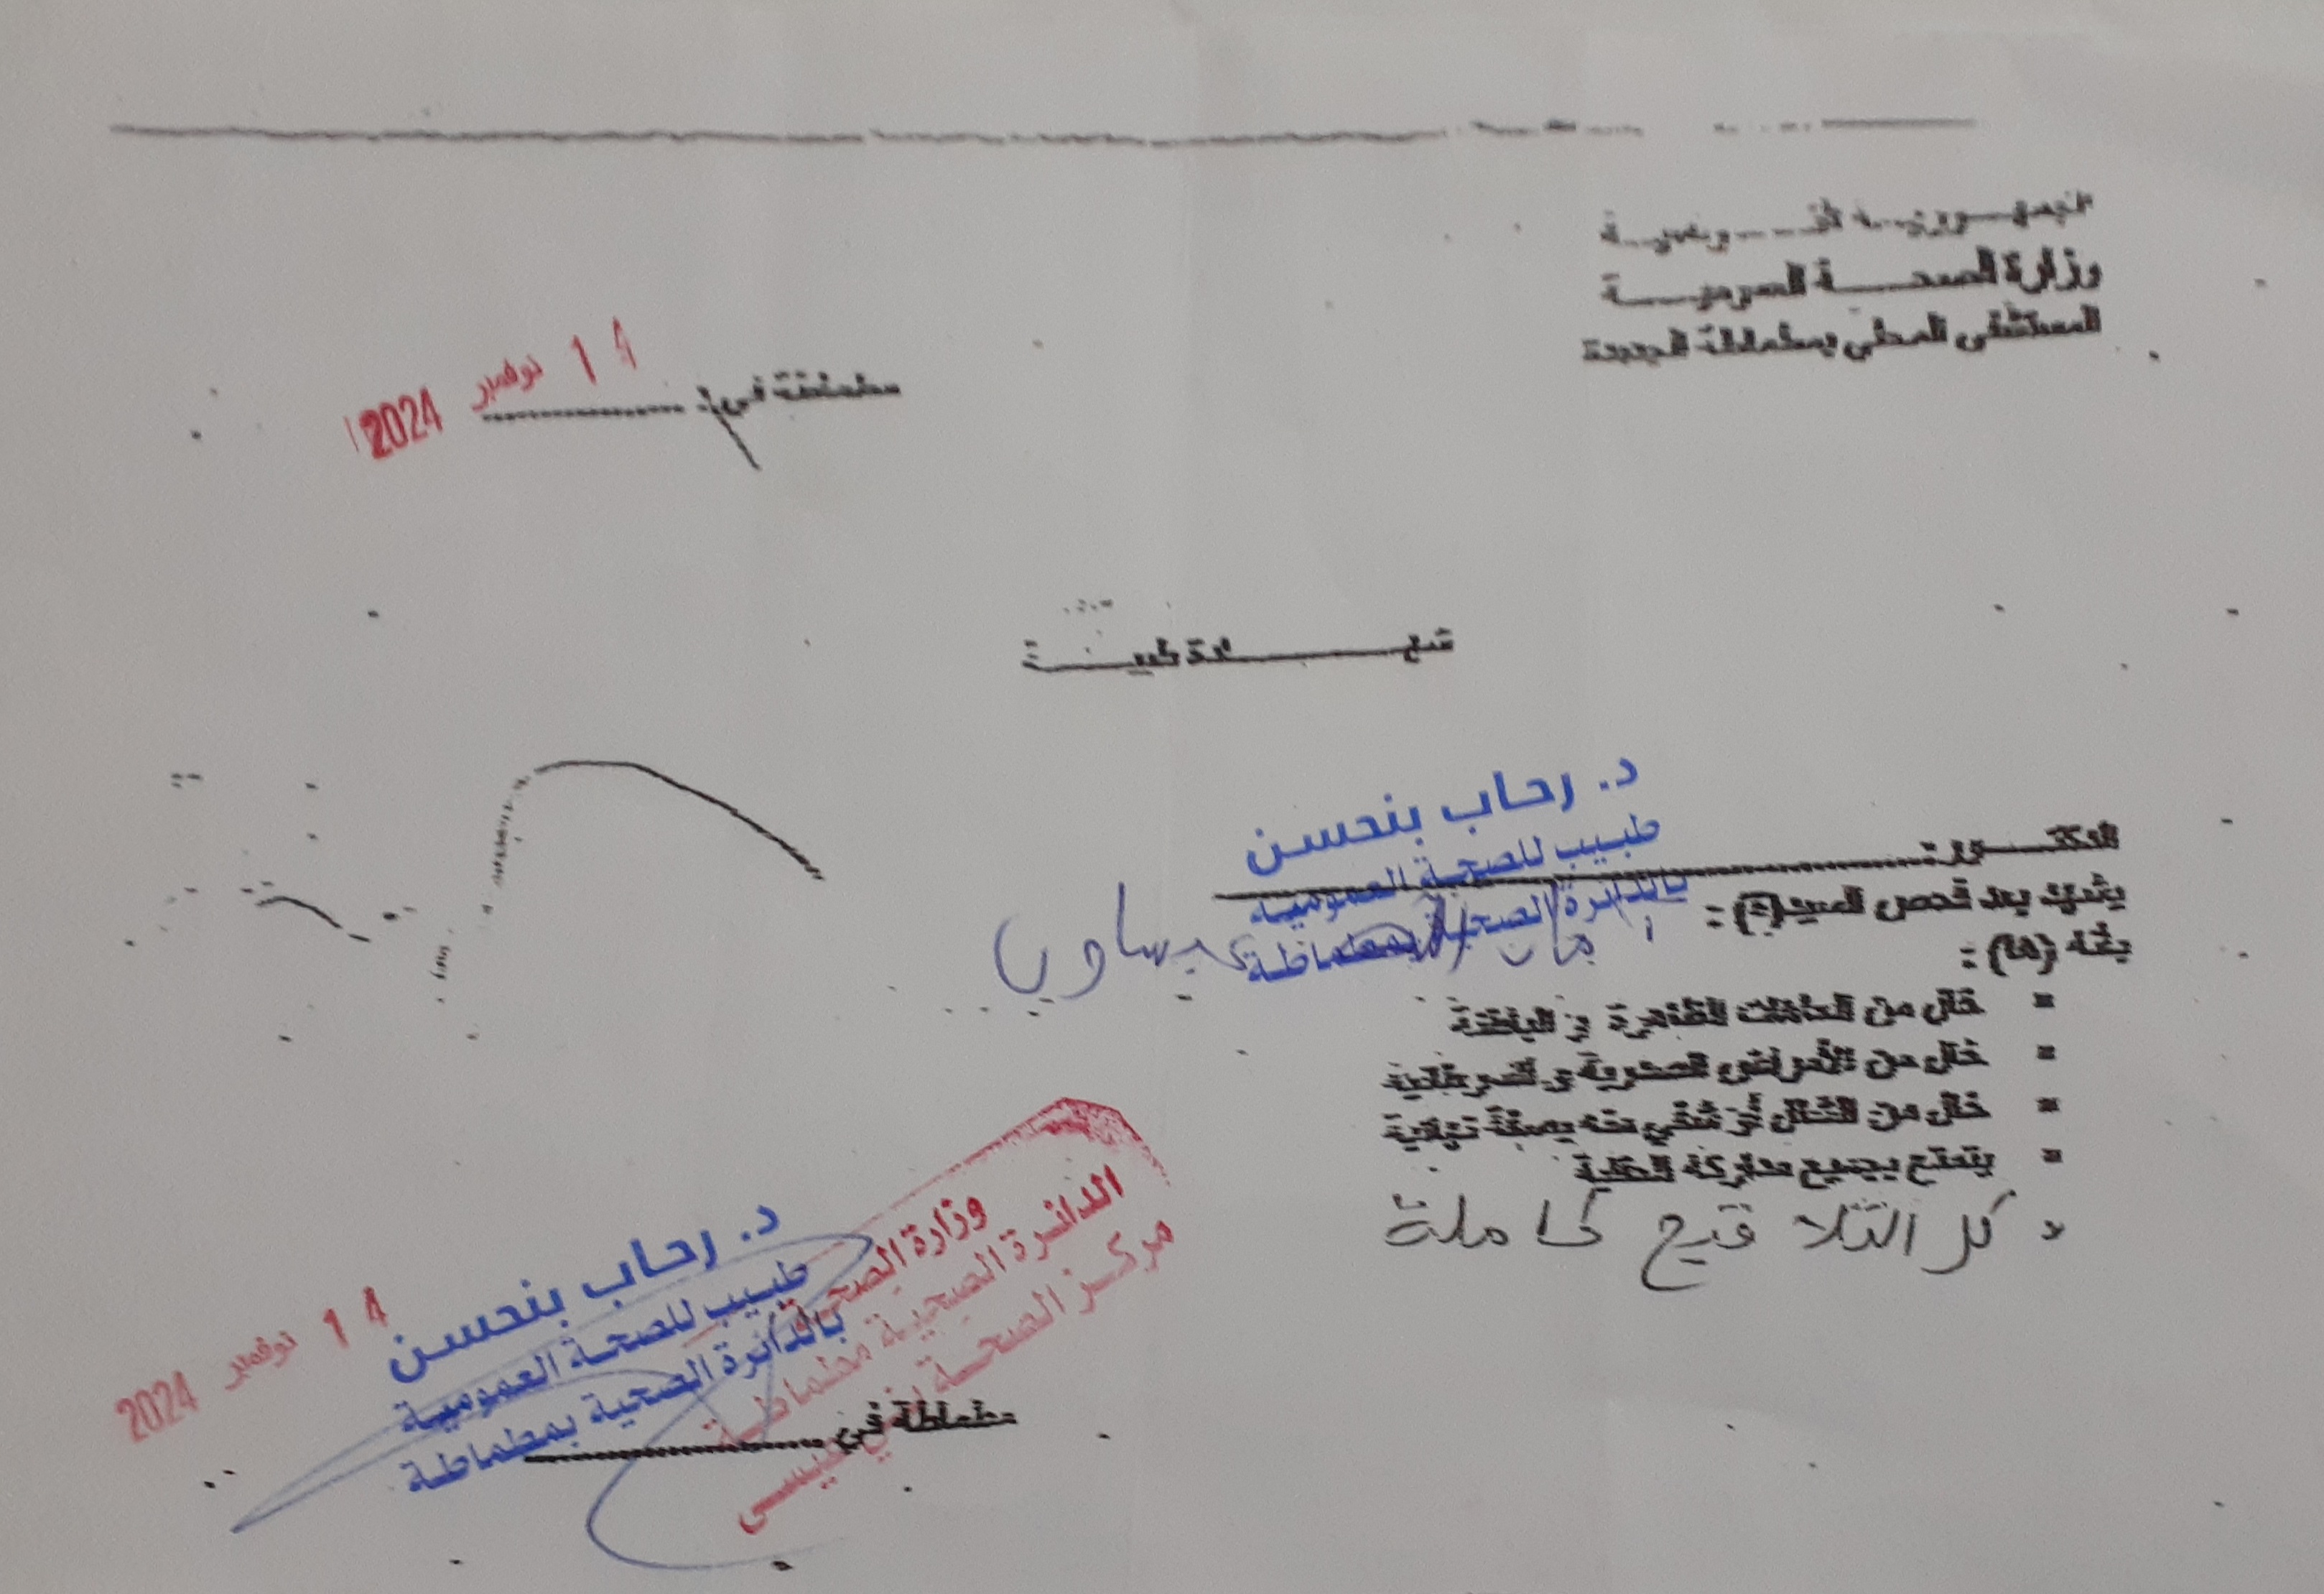 الجمهورية التونسية
وزارة الصحة العمومية
المستشفى المحلي بمطماطة الجديدة
مطماطة في : 14 نوفمبر 2024
شهادة طبية
د. رحاب بنحسن
طبيب للصحة العمومية
بالدائرة الصحية بمطماطة
الدكتور :
يشهد بعد فحص السيد(ة) : عيساوي
بأنه (ها) :
▪ خال من العاهات الظاهرة و الباطنة
▪ خال من الأمراض الصدرية و السرطانية
▪ خال من الشلل أو شفي منه بصفة نهائية
▪ يتمتع بجميع مداركه العقلية
كل التلاقيح كاملة
وزارة الصحة
الدائرة الصحية مطماطة
مركز الصحة
د. رحاب بنحسن
طبيب للصحة العمومية
بالدائرة الصحية بمطماطة
مطماطة في 14 نوفمبر 2024